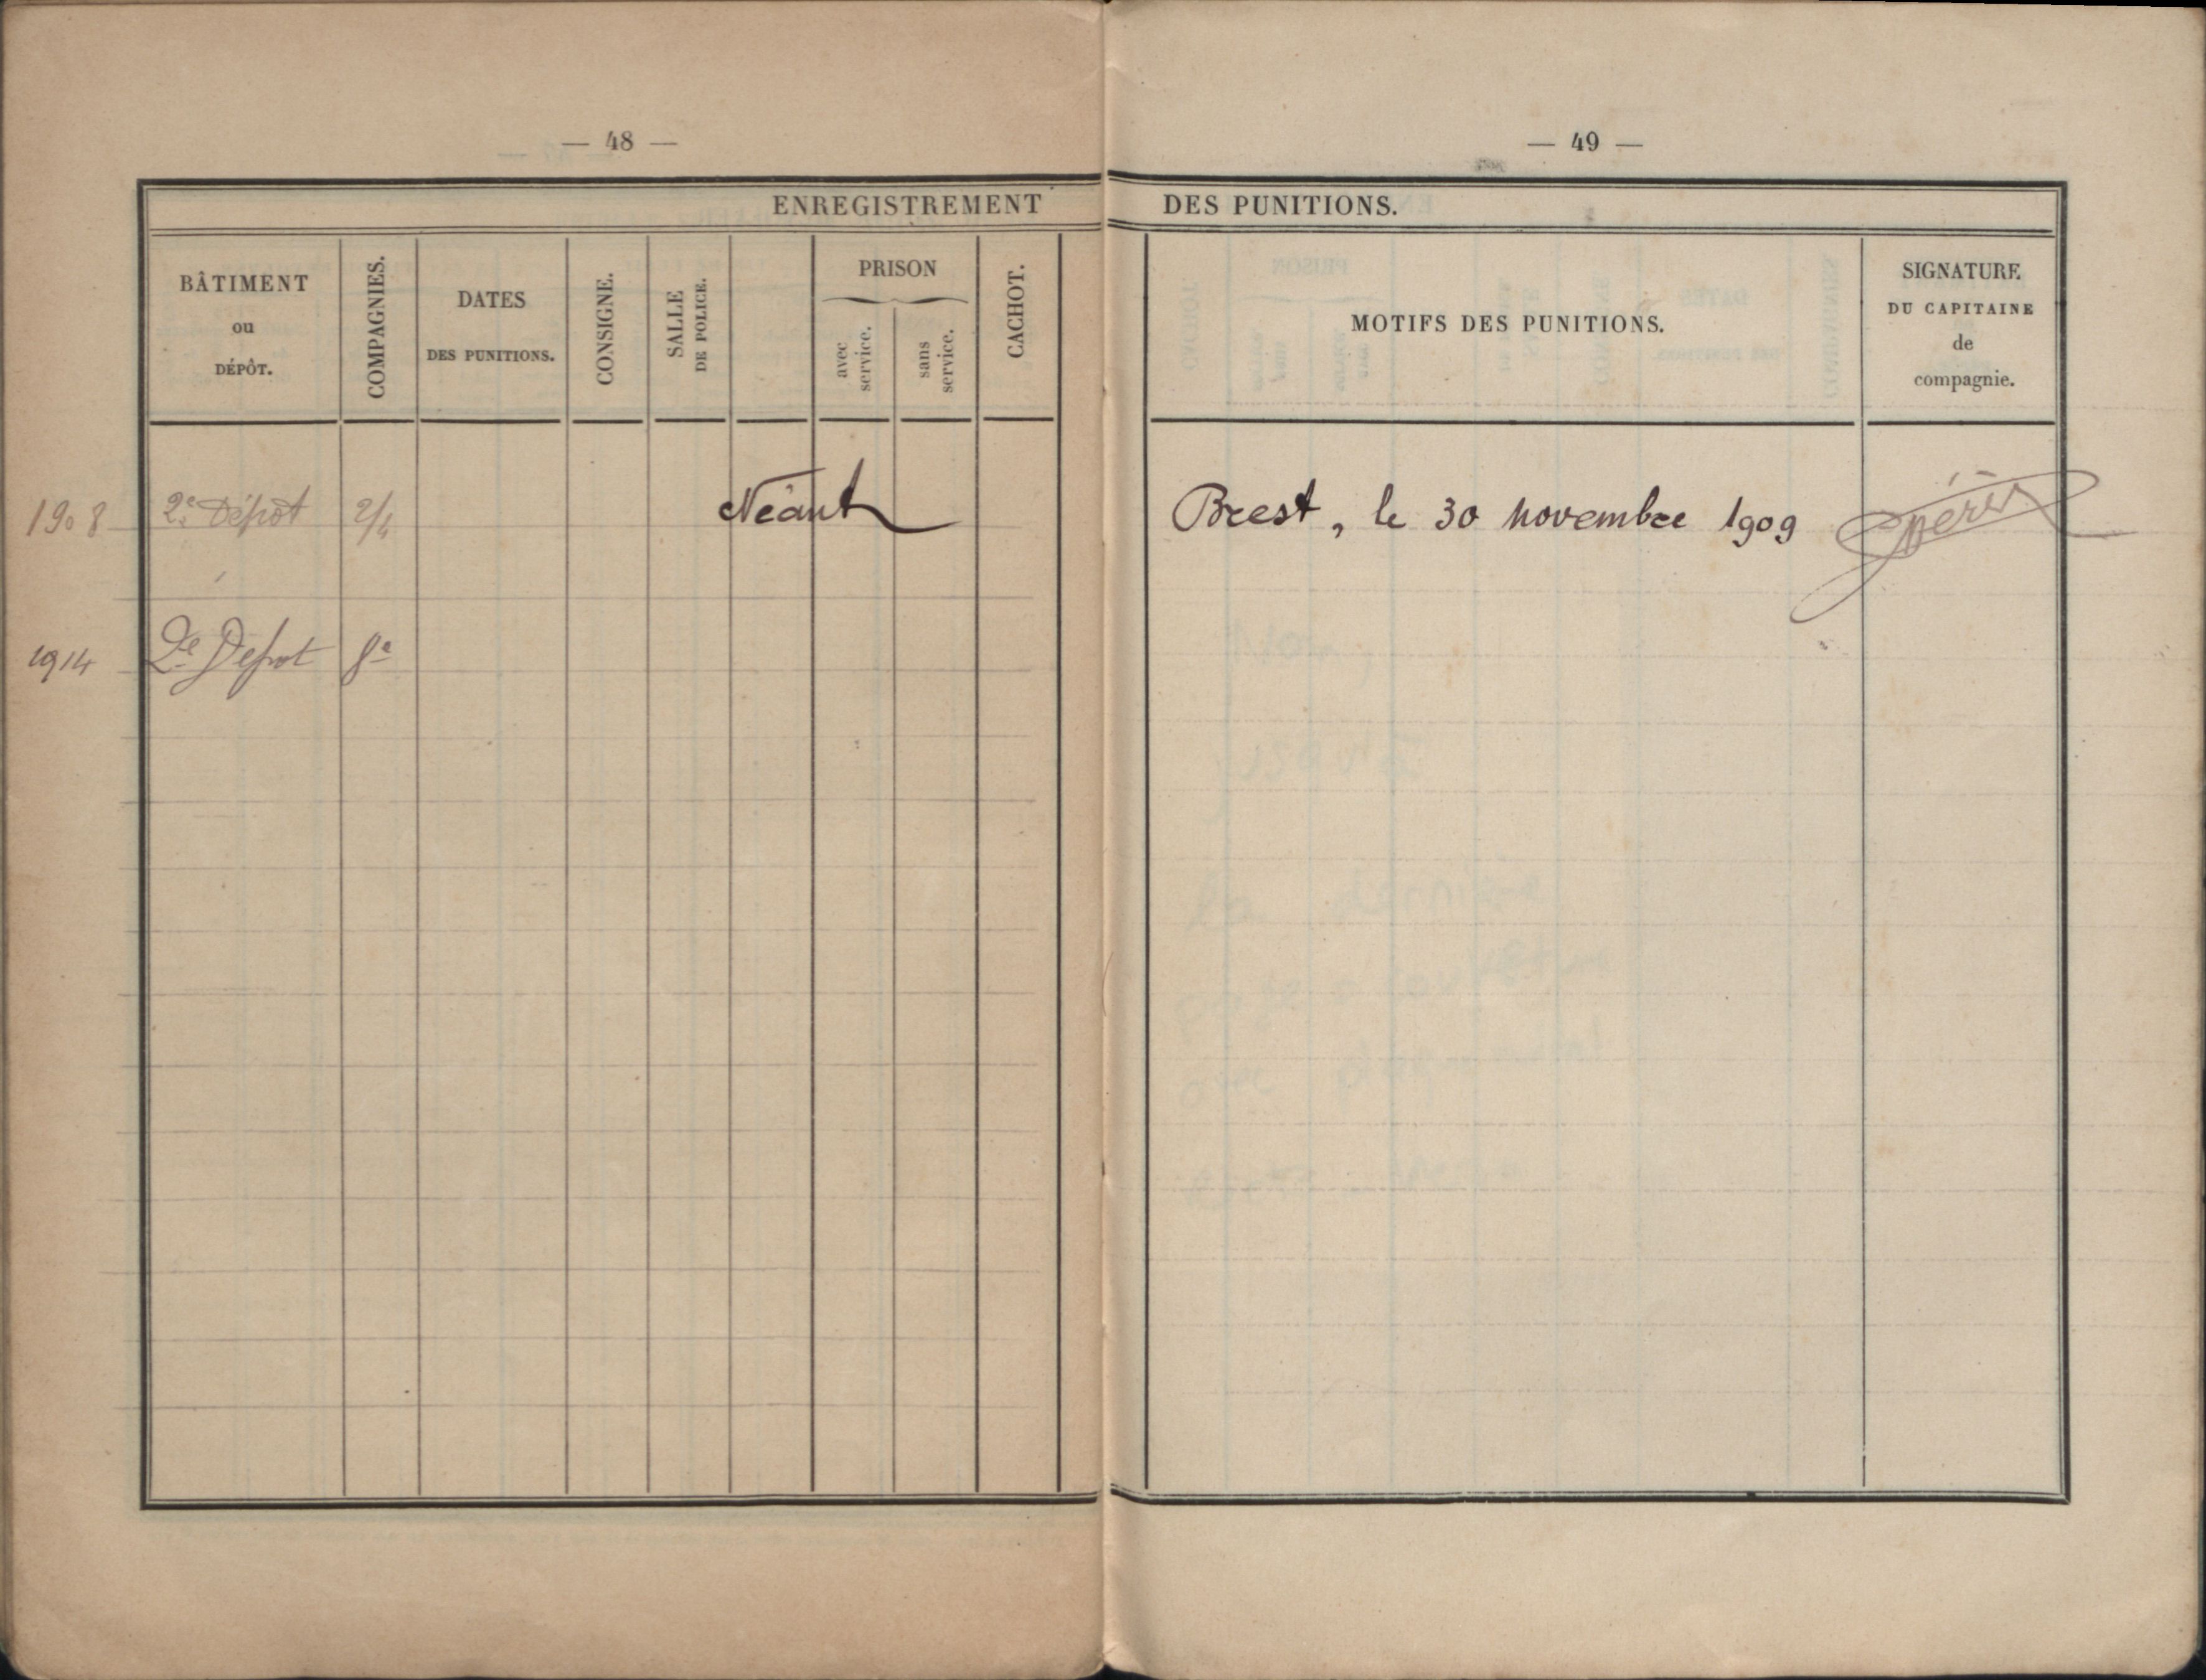 — 48 —
ENREGISTREMENT
BÂTIMENT
ou
DÉPÔT.
COMPAGNIES.
DATES
DES PUNITIONS.
CONSIGNE.
SALLE
DE POLICE.
PRISON
avec
service.
sans
service.
CACHOT.
1908 2e Dépôt 2/4 Néant
1914 2e Dépot 8e
— 49 —
DES PUNITIONS.
MOTIFS DES PUNITIONS.
SIGNATURE
DU CAPITAINE
de
compagnie.
Brest, le 30 novembre 1909